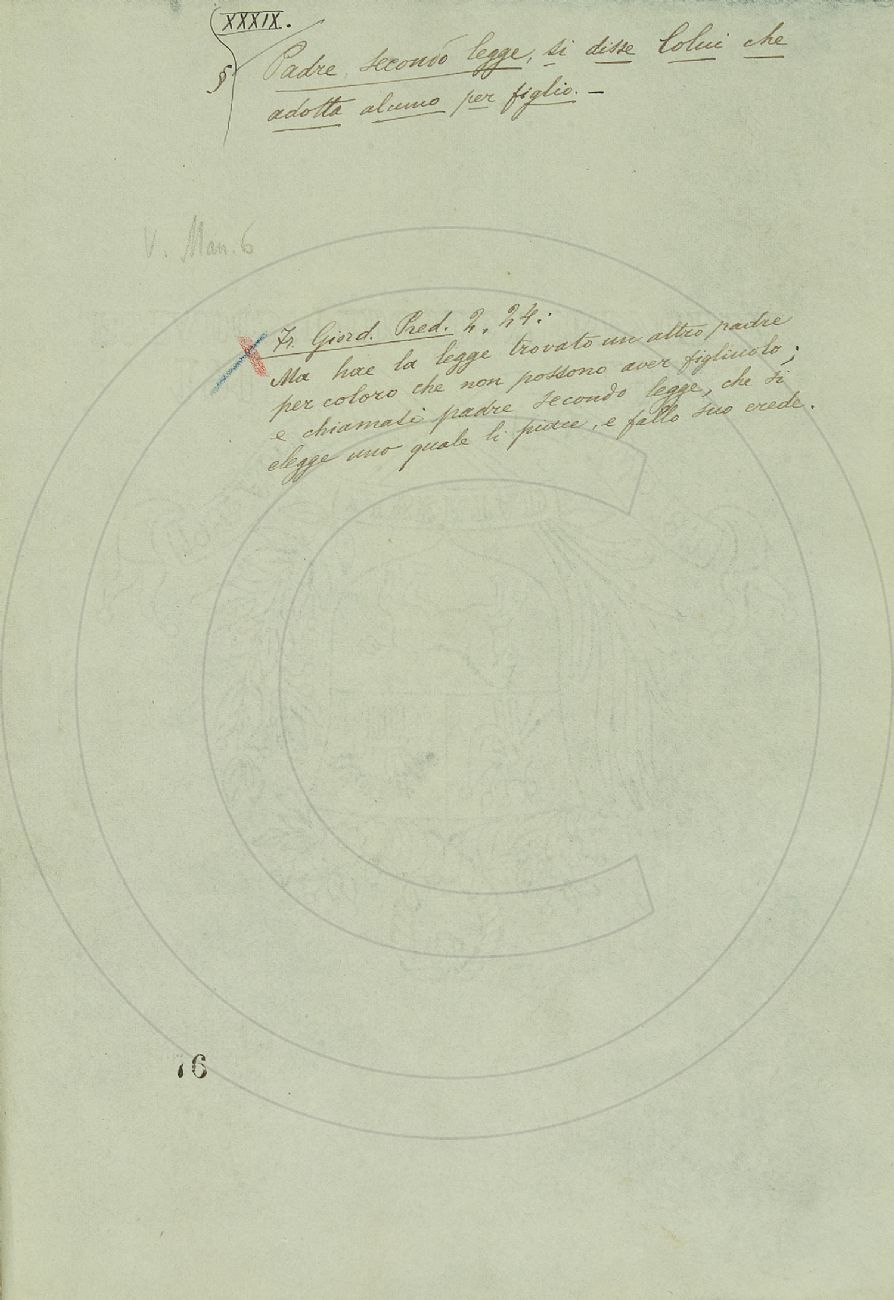 XXXIX.
§ Padre, secondo legge, si disse Colui che
adotta alcuno per figlio. —
V. Man. 6
Fr. Giord. Pred. 2. 24:
Ma hae la legge trovato un altro padre
per coloro che non possono aver figliuolo;
e chiamasi padre secondo legge, che si
elegge uno quale li piace, e fallo suo erede.
76